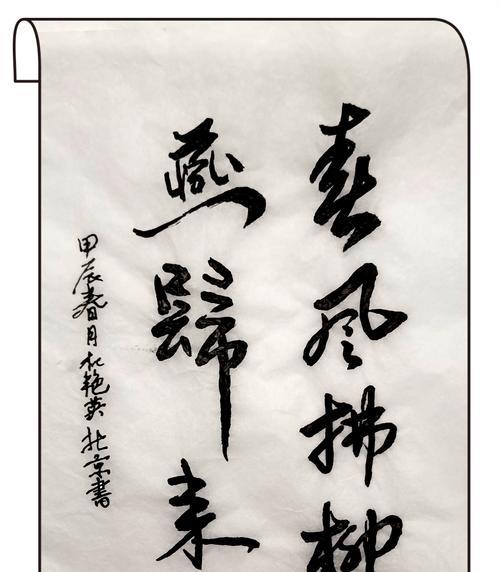 春风拂柳
燕歸来
甲辰春月杜艳英北京書